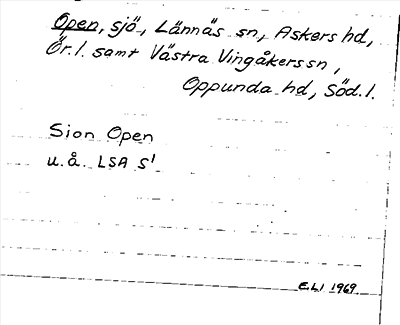 Open, sjö, Lännäs sn, Askers hd,
Ör. l. samt Västra Vingåkers sn,
Oppunda hd, Söd. l.
Sion Open
u.å. LSA S1
E.L. 1969